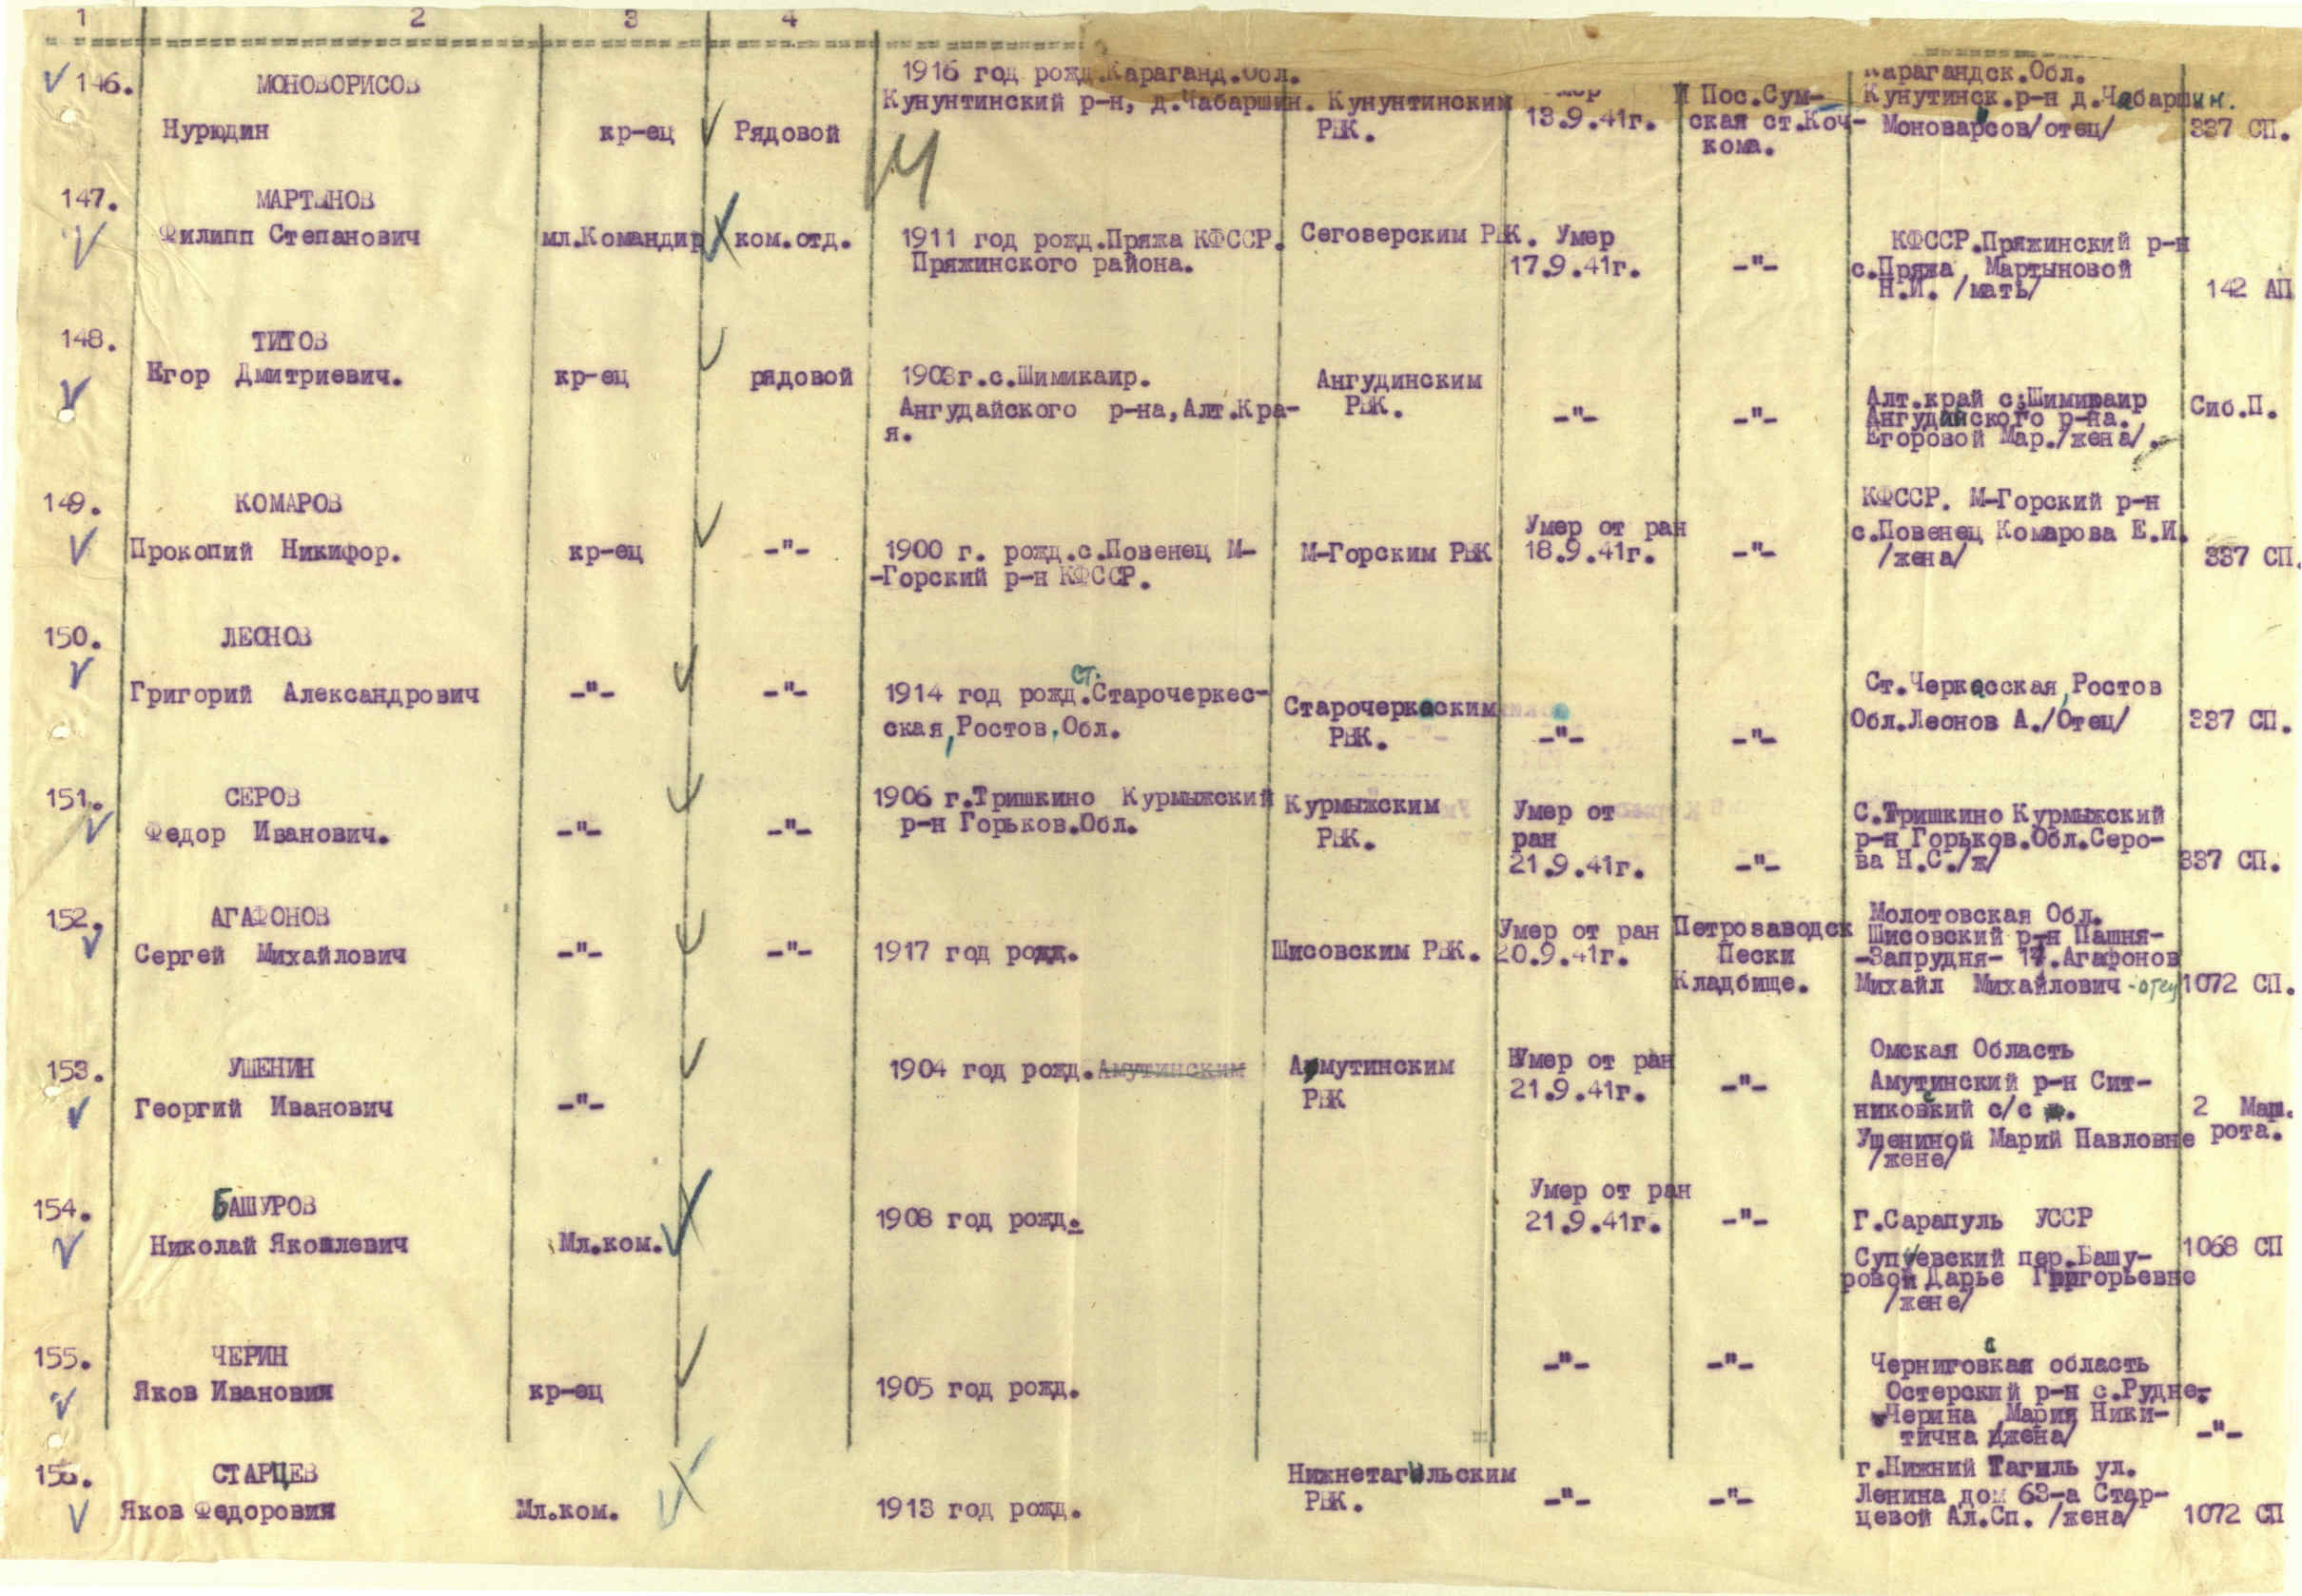 1 2 3 4
146. МОНОВОРИСОВ
Нурюдин
кр-ец
Рядовой
1916 год рожд.Караганд.Обл.
Кунунтинский р-н, д.Чабаршин.
Кунунтинским
РВК.
13.9.41г.
П Пос.Сум-
ская ст.Коч-
кома.
Карагандск.Обл.
Кунутинск.р-н д.Чабаршин.
Моноварсов/отец/
337 СП.
14
147. МАРТЫНОВ
Филипп Степанович
мл.Командир
ком.отд.
1911 год рожд.Пряжа КФССР.
Пряжинского района.
Сеговерским РВК.
Умер
17.9.41г.
-"-
КФССР.Пряжинский р-н
с.Пряжа, Мартыновой
Н.И. /мать/
142 АП
148. ТИТОВ
Егор Дмитриевич.
кр-ец
рядовой
1903г.с.Шимикаир.
Ангудайского р-на,Алт.Кра-
я.
Ангудинским
РВК.
-"-
-"-
Алт.край с.Шимикаир
Ангудайского р-на.
Егоровой Мар./жена/.
Сиб.П.
149. КОМАРОВ
Прокопий Никифор.
кр-ец
-"-
1900 г. рожд.с.Повенец М-
-Горский р-н КФССР.
М-Горским РВК
Умер от ран
18.9.41г.
-"-
КФССР. М-Горский р-н
с.Повенец Комарова Е.И.
/жена/
337 СП.
150. ЛЕОНОВ
Григорий Александрович
-"-
-"-
1914 год рожд.ст.Старочеркес-
ская,Ростов.Обл.
Старочеркеским
РВК.
-"-
-"-
Ст.Черкасская,Ростов
Обл.Леонов А./Отец/
337 СП.
151. СЕРОВ
Федор Иванович.
-"-
-"-
1906 г.Тришкино Курмыжский
р-н Горьков.Обл.
Курмыжским
РВК.
Умер от
ран
21.9.41г.
-"-
С.Тришкино Курмыжский
р-н Горьков.Обл.Серо-
ва Н.С./ж/
337 СП.
152. АГАФОНОВ
Сергей Михайлович
-"-
-"-
1917 год рожд.
Шисовским РВК.
Умер от ран
20.9.41г.
Петрозаводск
Пески
Кладбище.
Молотовская Обл.
Шисовский р-н Пашня-
-Запрудня- 17.Агафонов
Михайл Михайлович -отец
1072 СП.
153. УШЕНИН
Георгий Иванович
-"-
1904 год рожд.Амутинским
Армутинским
РВК
Умер от ран
21.9.41г.
-"-
Омская Область
Амутинский р-н Сит-
никовкий с/с
Ушениной Марий Павловне
/жене/
2 Марш.
рота.
154. БАШУРОВ
Николай Яковлевич
Мл.ком.
1908 год рожд.
Умер от ран
21.9.41г.
-"-
Г.Сарапуль УССР
Супуевский пер.Башу-
ровой Дарье Григорьевне
/жене/
1068 СП
155. ЧЕРИН
Яков Иванович
кр-ец
1905 год рожд.
-"-
-"-
Черниговская область
Остерский р-н с.Рудне-
Черина Мария Ники-
тична /жена/
-"-
156. СТАРЦЕВ
Яков Федорович
Мл.ком.
1913 год рожд.
Нижнетагильским
РВК.
-"-
-"-
г.Нижний Тагиль ул.
Ленина дом 63-а Стар-
цевой Ал.Сп. /жена/
1072 СП